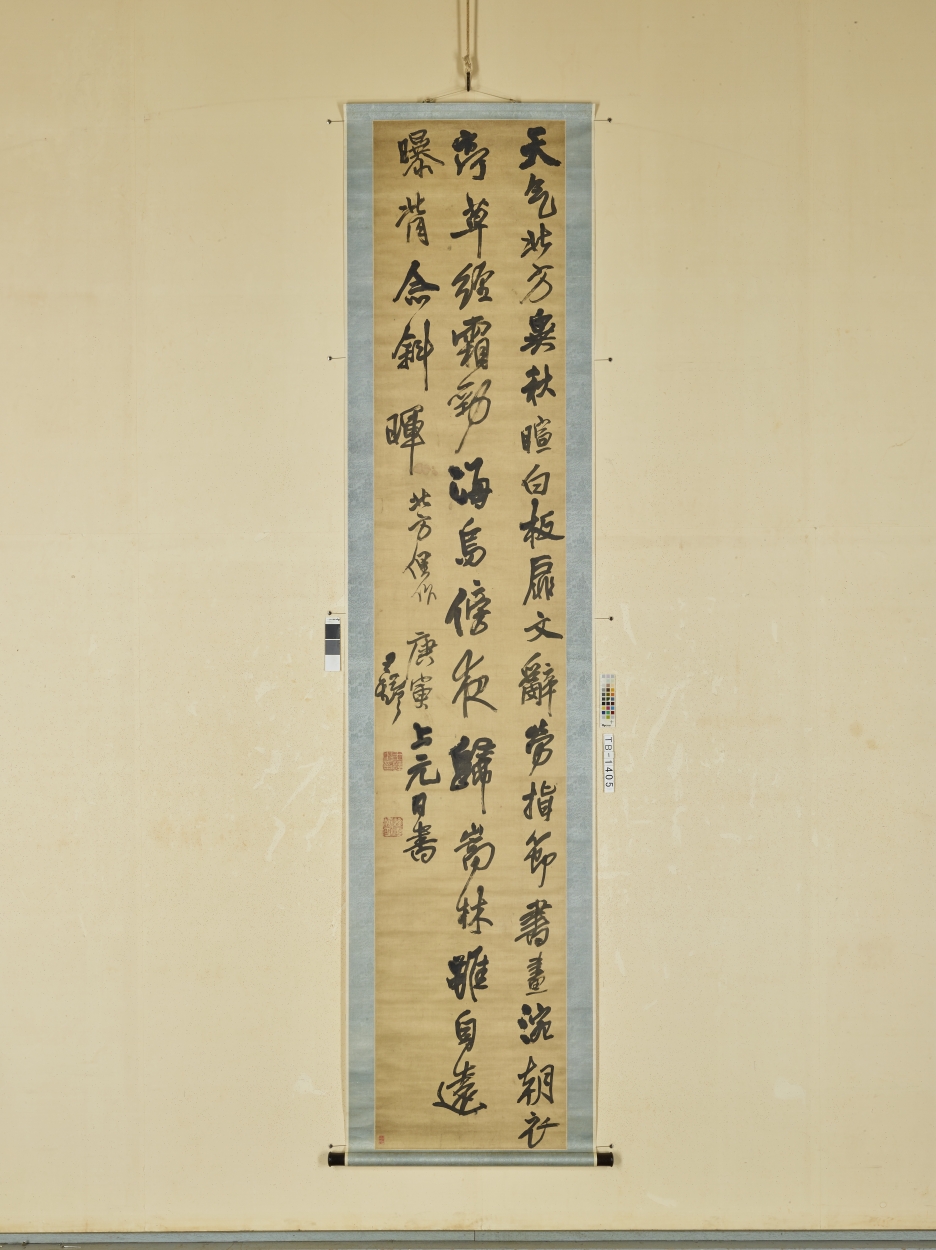 天气北方異秋暄白板扉文辭勞指節書畫涴朝衣
齊草經霜勁海鳥傍夜歸嵩林雖自遠
曝背念斜暉 北方偶作 庚寅上元日書
王鐸
TB-1405